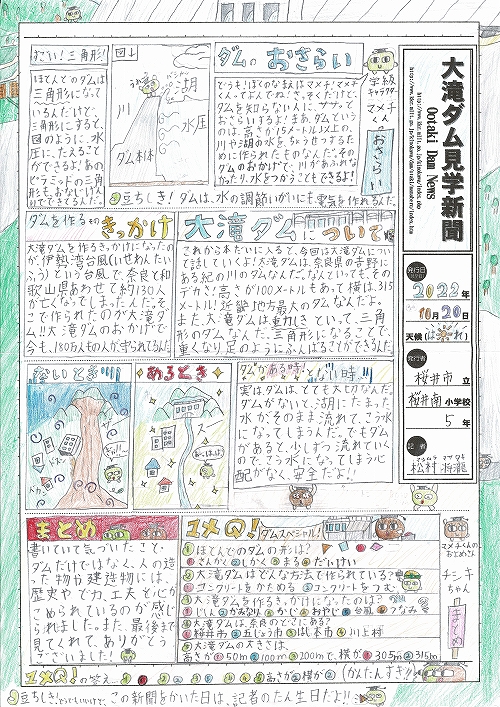 大滝ダム見学新聞
Ootaki Dam News
発行日
2022年
10月20日
天候(は れ)
発行者
桜井市 立
桜井南 小学校
5 年
記者
松村 将瀧
ダムのおさらい
学級
キャラクター
マメチくん
おさらい
川や湖の水をちょうせつするため
に作られたものなんだ。その
ダムのおかげで、川があふれな
かったり、水をつかうこともできるよ!
豆ちしき!ダムは、水の調節いがいにも電気を作れるんだ。
すごい!三角形!
ほとんどのダムは
三角形になって
いるんだけど、
三角形にすると、
図のように、水
圧に、たえるこ
とができるよ!あの
ピラミッドの三角
形も、おたしけん
図↓
湖
川
水圧
ダム本体
大滝ダムについて
これから本だいに入ると、今回は大滝ダムについ
て話していくよ!大滝ダムは、奈良県の吉野に
ある紀の川のダムなんだ。なんといっても、その
デカさ!高さが100メートルもあって横は、315
メートル!近畿地方最大のダムなんだ。
また大滝ダムは重力しきといって、三角
形のダムなんだ。三角形になることで、
重くなり足のようにふんばることができるんだ。
ダムを作るそのきっかけ
大滝ダムを作るきっかけになったの
が、伊勢湾台風(いせわんたい
ふう)という台風で、奈良と和
歌山県あわせて約130人
が亡くなってしまったんだ。そ
こで作られたのが大滝ダ
ム!!大滝ダムのおかげで
今も、180万人もの人が守られてるんだ
ないとき!!
あるとき
ダムがある時!とない時!!
実は、ダムは、とても大切なんだ。
ダムがないと、湖にたまった
水がそのまま流れて、こう水
になってしまうんだ。でもダム
があると、少しずつ流れていく
ので、こう水になってしまう心
配がなく、安全だよ!!
まとめ
書いていて気づいたこと・
ダムだけではなく、人の造
った物や建造物には、
歴史やど力、工夫と心が
こめられているのが感じ
られました。また、最後まで
見てくれて、ありがとう
ございました!
マメQ!ダムスペシャル!
①ほとんどのダムの形は?
①さんかく②しかく③まる④だいけい
②大滝ダムはどんな方式で作られている?
①コンクリートをかためる②コンクリートをつむ
③大滝ダムを作るきっかけになったのは?
①じしん②かみなり③かじ④おやじ⑤台風⑥つなみ
④大滝ダムは、奈良のどこにある?
①桜井市②五じょう市③はし本市④川上村
⑤大滝ダムの大きさは、
高さが①50m②100m③200mで、横が①305m②315m
マメチくんの
おともだち
チシキ
ちゃん
まとめ
マメQ!の答え
高さが②横が②
(かんたんすぎ!!)
この新聞をかいた日は、記者のたん生日だよ!!